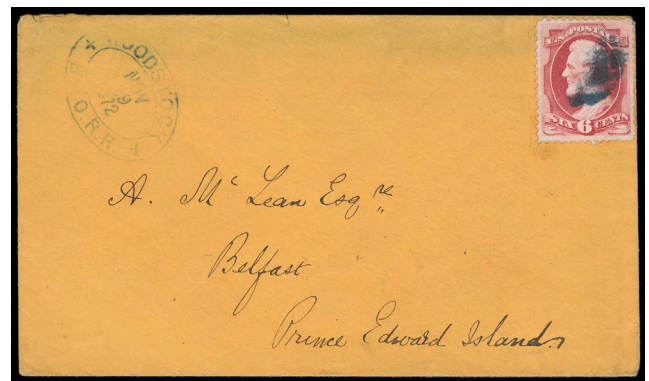 WOODSTOCK
JUN
19
72
O.R.R.
U.S. POSTAGE
SIX 6 CENTS
A. Mc Lean Esqre
Belfast
Prince Edward Island.